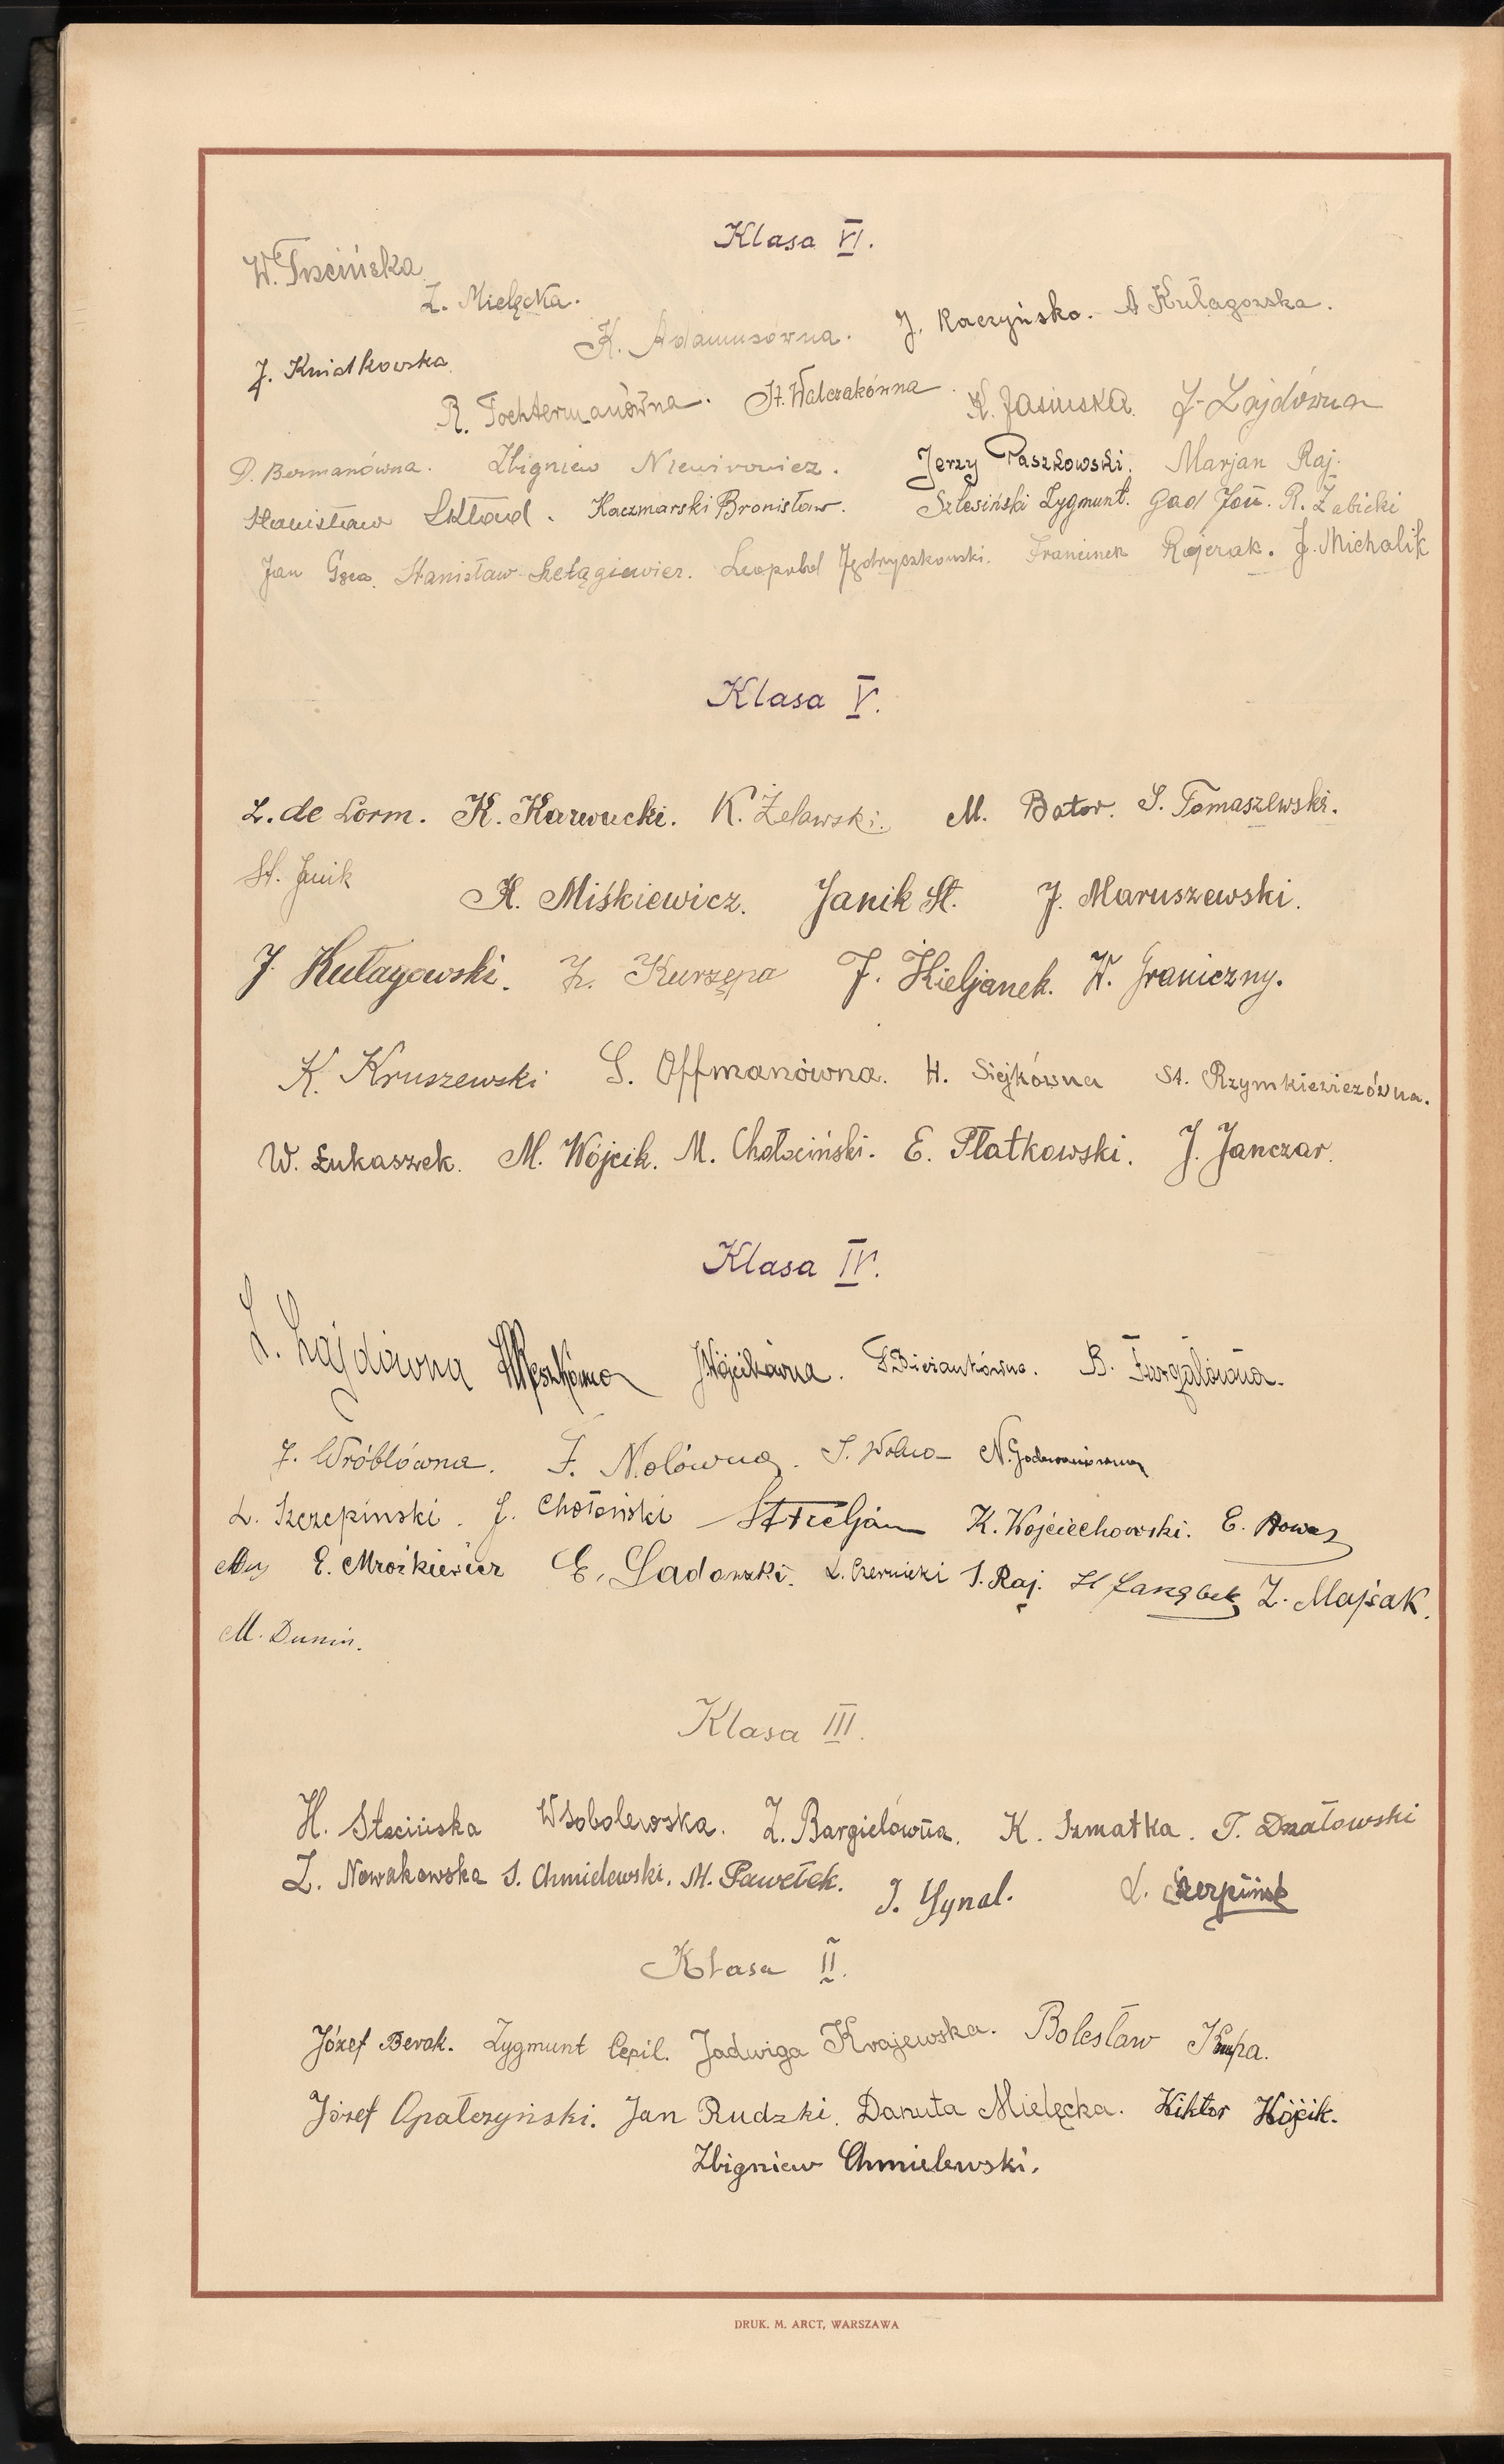 Klasa VI.
W. Trzcińska
Z. Mielęcka.
K. Adamusówna. J. Kaczyńska. A Kułagowska.
J. Kwiatkowska.
R. Tochtermanówna. St. Walczakówna K. Jasińska. J. Zajdówna
D. Bermanówna. Zbigniew Niewirowicz. Jerzy Paszkowski. Marjan Raj.
Stanisław Skład. Kaczmarski Bronisław. Szlesiński Zygmunt. Gad Jan. R. Żabicki
Jan. Stanisław Szelągiewicz. Leopold Jędryszkowski. Franciszek Rojerak. J. Michalik
Klasa V.
Z. de Lorm. K. Karwacki. K. Żelawski. M. Bator. S. Tomaszewski.
St. Janik
K. Miśkiewicz. Janik St. J. Maruszewski.
J. Kułagowski. Z. Kurzępa F. Kieljanek. W. Graniczny.
K. Kruszewski S. Offmanówna. H. Siejkówna St. Rzymkiewiczówna.
W. Łukaszek. M. Wójcik. M. Chołociński. E. Płatkowski. J. Janczar.
Klasa IV.
Z. Zajdówna J Wójcikówna. B.
J. Wróblówna. F. Molówna. S. Wolna
L. Szczepinski. J. K. Wojciechowski. E. Nowak
E. Mroźkiewicz E. Sadowski. L. Czernicki S. Raj. Z. Majsak.
M. Dunin.
Klasa III.
H. Stacińska W Sobolewska. Z. Bargielówna. K. Szmatka. T. Działowski
Z. Nowakowska S. Chmielewski. M. Pawełek. J. Synal. L.
Klasa II.
Józef Berak. Zygmunt Cepil. Jadwiga Krajewska. Bolesław Krupa.
Józef Opatczyński. Jan Rudzki. Danuta Mielęcka. Wiktor Wójcik.
Zbigniew Chmielewski.
DRUK. M. ARCT, WARSZAWA